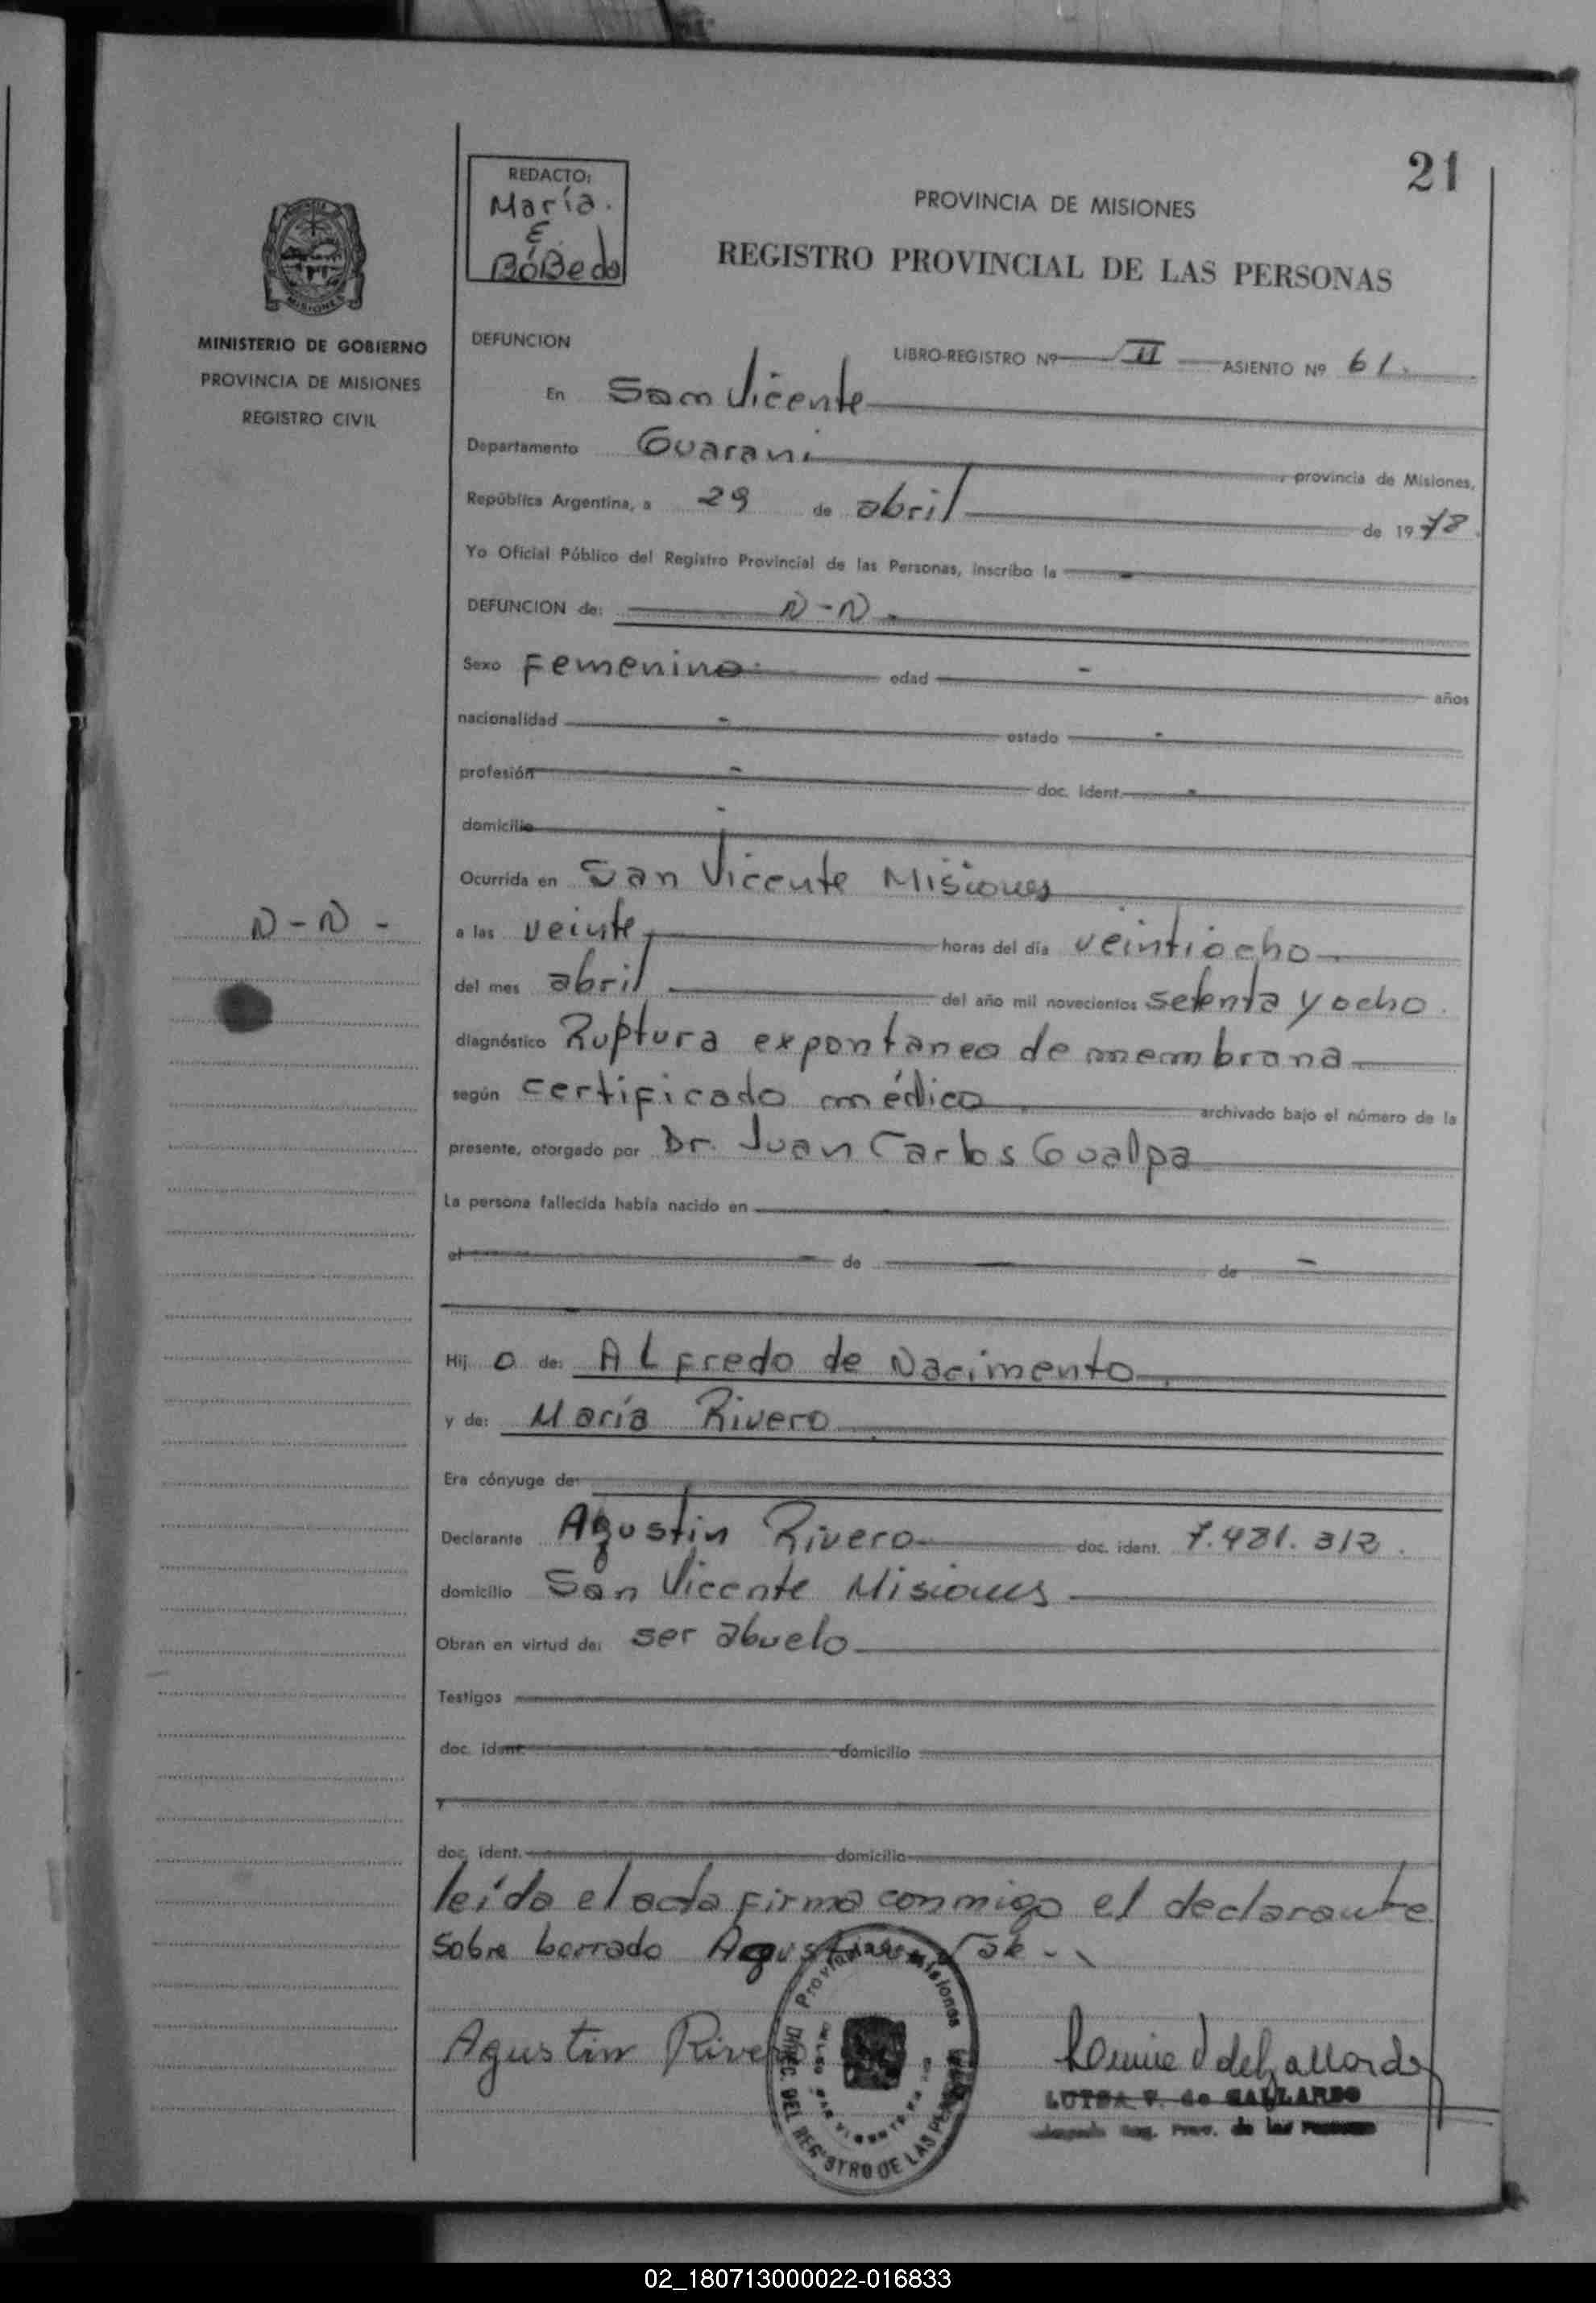 21
REDACTO:
María.
E.
BóBeda
PROVINCIA DE MISIONES
REGISTRO PROVINCIAL DE LAS PERSONAS
MISIONES
MINISTERIO DE GOBIERNO
PROVINCIA DE MISIONES
REGISTRO CIVIL
DEFUNCION
LIBRO-REGISTRO Nº II ASIENTO Nº 61.
En San Vicente
Departamento Guarani, provincia de Misiones,
República Argentina, a 29 de abril de 1978.
Yo Oficial Público del Registro Provincial de las Personas, inscribo la -
DEFUNCION de: N-N-
Sexo Femenino edad - años
nacionalidad - estado -
profesión - doc. ident. -
domicilio -
Ocurrida en San Vicente Misiones
N-N-
a las veinte horas del día veintiocho
del mes abril del año mil novecientos setenta y ocho.
diagnóstico Ruptura expontaneo de membrana
según certificado médico archivado bajo el número de la
presente, otorgado por Dr. Juan Carlos Gualpa
La persona fallecida había nacido en -
el - de - de -
Hij o de: ALfredo de Nacimento
y de: María Rivero
Era cónyuge de:
Declarante Agustin Rivero doc. ident. 7.481.312.
domicilio San Vicente Misiones
Obran en virtud de: ser abuelo
Testigos
doc. ident. domicilio
y
doc. ident. domicilio
leída el acta firma conmigo el declarante
Sobre borrado
Agustin Rivero
Provincia de Misiones
DIREC. DEL REGISTRO DE LAS
LUISA V. de GALLARDO
Reg. Prov. de las Personas
02_180713000022-016833